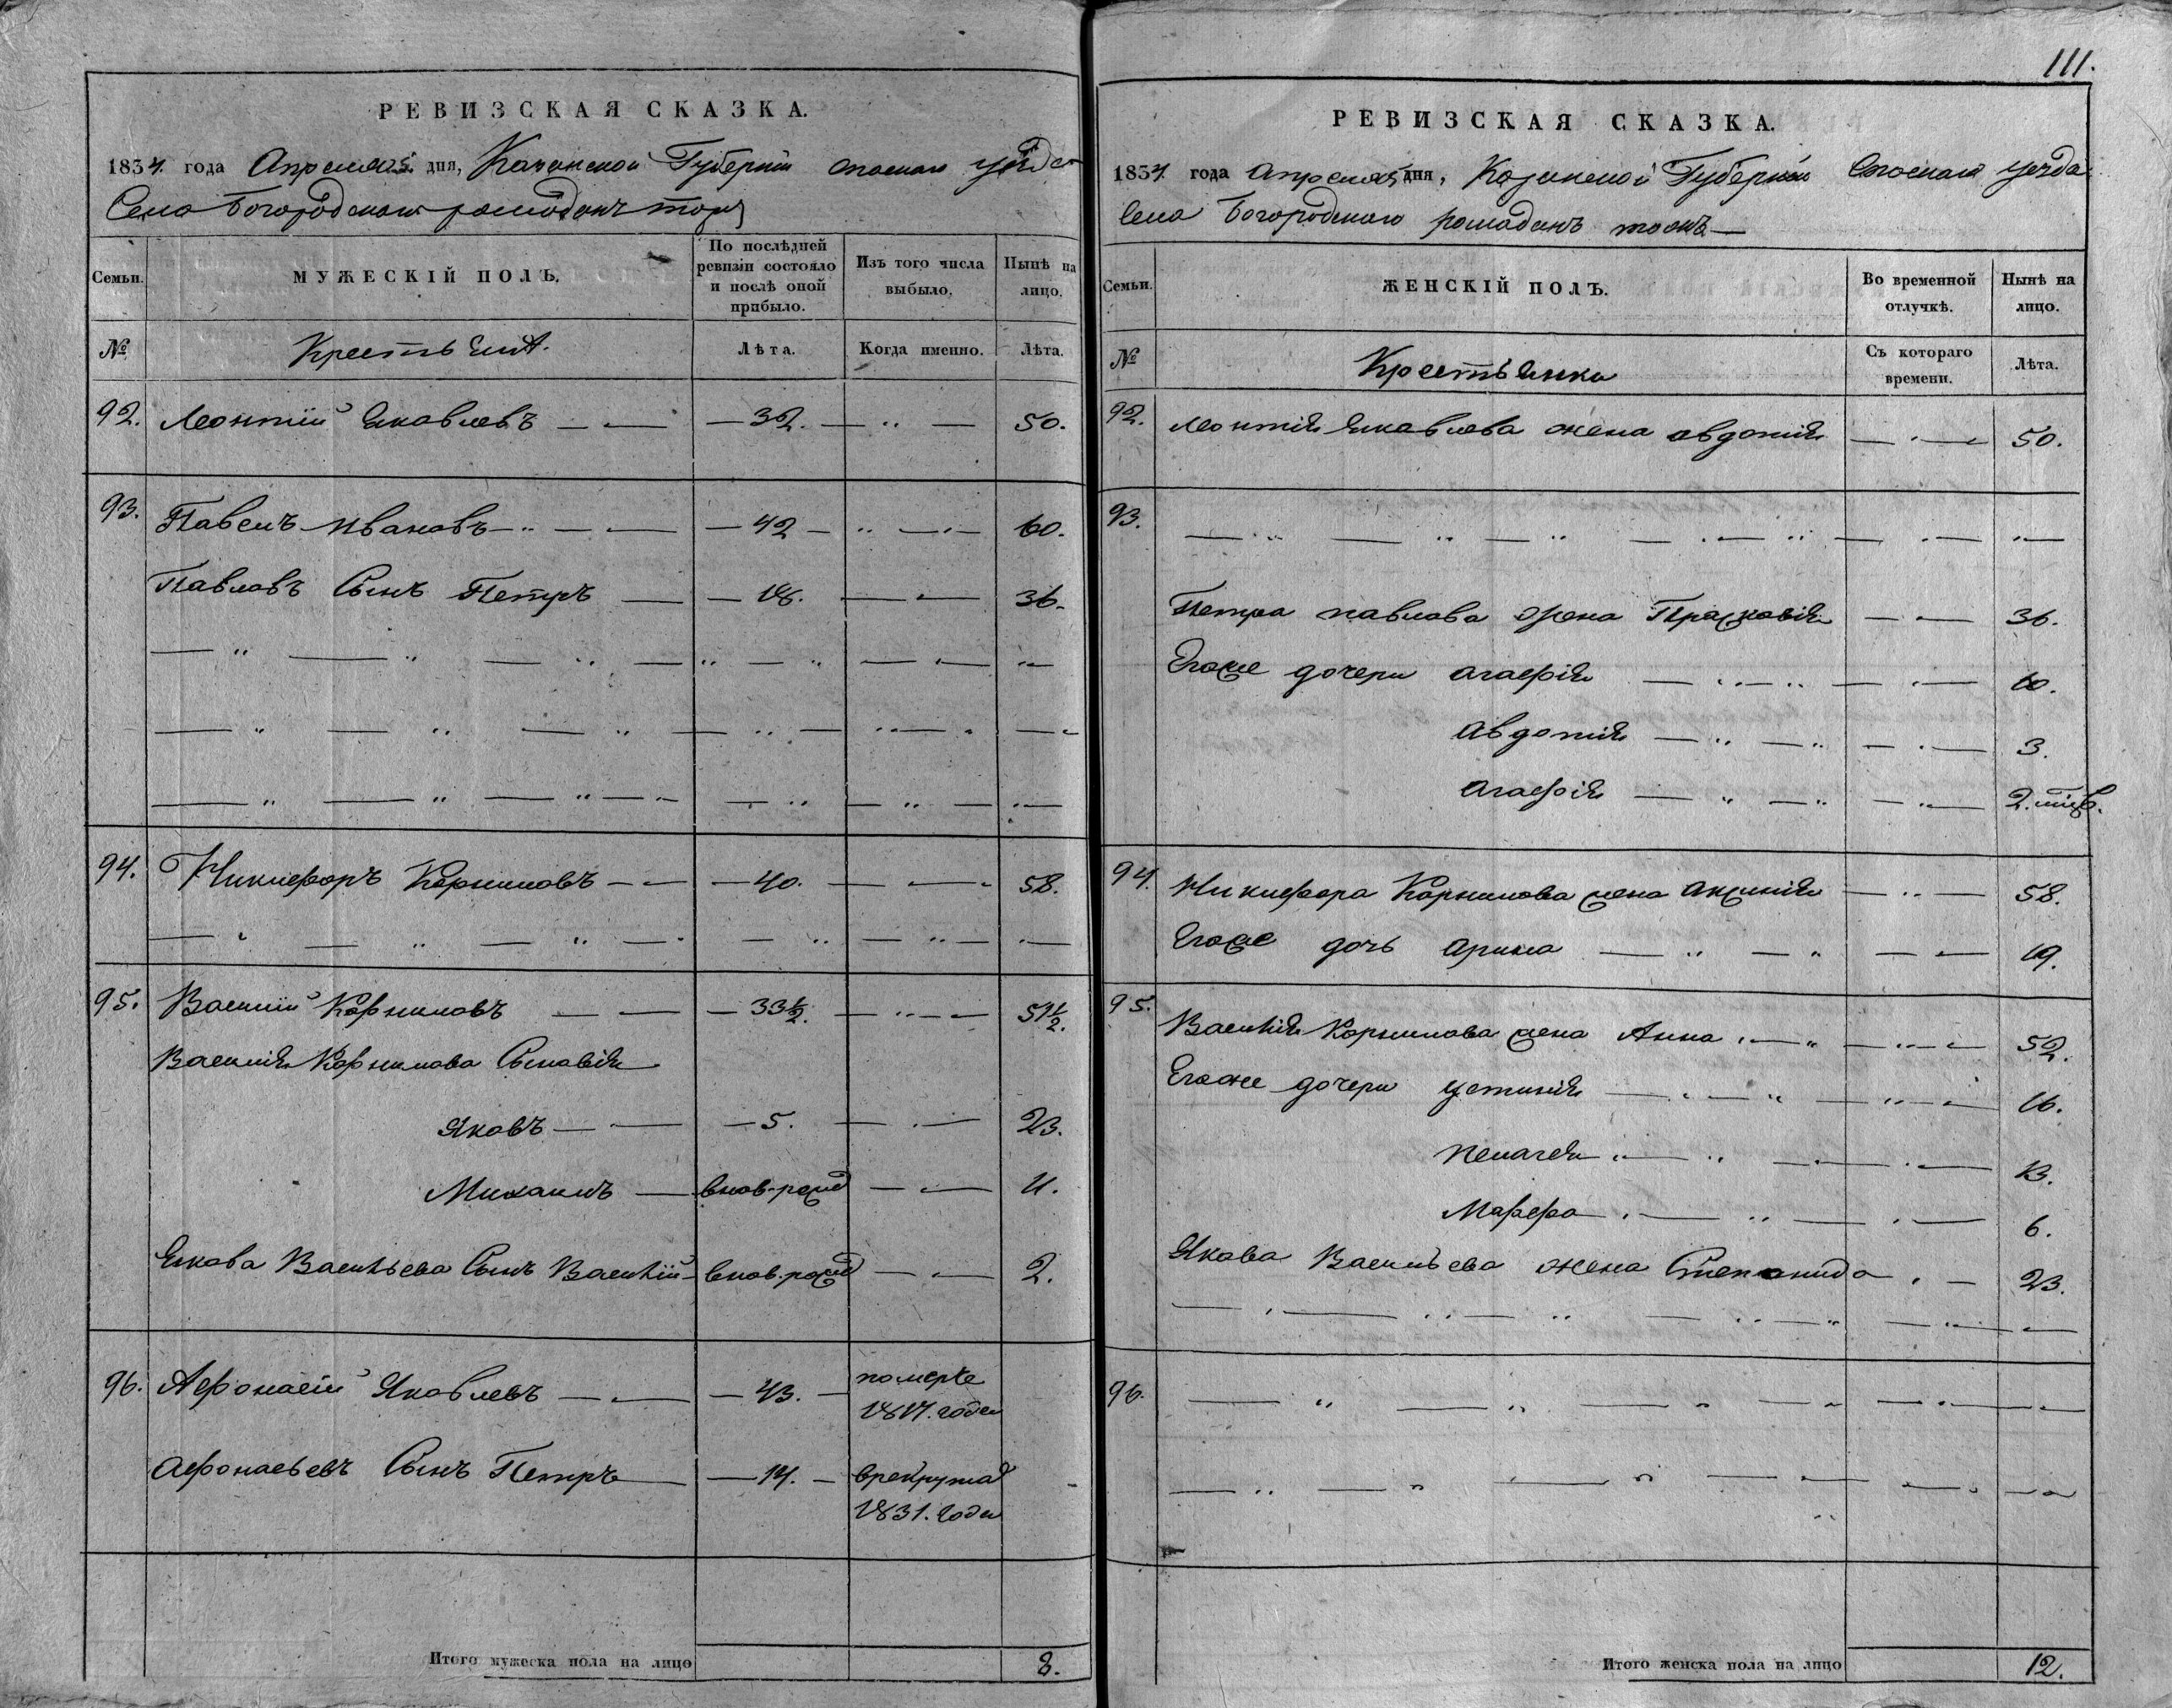 РЕВИЗСКАЯ СКАЗКА.
1834. года Апреля дня, Казанской Губерніи Спаскаго уезда
Села Богородскаго ромоданъ тожъ
Семьи.
МУЖЕСКІЙ ПОЛЪ.
По послѣдней ревизіи состояло и послѣ оной прибыло.
Изъ того числа выбыло.
Нынѣ на лицо.
№
Крестьяня.
Лѣта.
Когда именно.
Лѣта.
92. Леонтий Яковлевъ — 32. — 50.
93. Павелъ Ивановъ — 42 — 60.
Павловъ Сынъ Петръ — 18. — 36.
94. Никифоръ Корниловъ — 40. — 58.
95. Василии Корниловъ — 33 1/2. — 51 1/2.
Василия Корнилова Сыновія
Яковъ — 5. — 23.
Михаилъ — внов. рожд — 11.
Якова Васильева Сынъ Василій — внов. рожд — 2.
96. Афонасеи Яковлевъ — 43. — померъ
1817. годе
Афонасьевъ Сынъ Петръ — 14. — врекрутах
1831. Годе
Итого мужеска пола на лицо 8.
111.
РЕВИЗСКАЯ СКАЗКА.
1834. года Апреля дня, Казанской Губерніи Спаскаго уезда
Села Богородскаго ромоданъ тожъ
Семьи.
ЖЕНСКІЙ ПОЛЪ.
Во временной отлучкѣ.
Нынѣ на лицо.
№
Крестьянки
Съ котораго времени.
Лѣта.
92. Леонтия Яковлева жена Авдотия — 50.
93.
Петра Павлова жена Прасковія — 36.
Егоже дочери Агафія — 10.
Авдотия — 3.
Агафія — 2.
94. Никифора Корнилова жена Аксиния — 58.
Егоже дочь Арина — 19.
95. Василия Корнилова жена Анна — 52.
Егоже дочери Устиния — 16.
Пелагея — 13.
Марфа — 6.
Якова Васильева жена Степанида — 23.
96.
Итого женска пола на лицо 12.